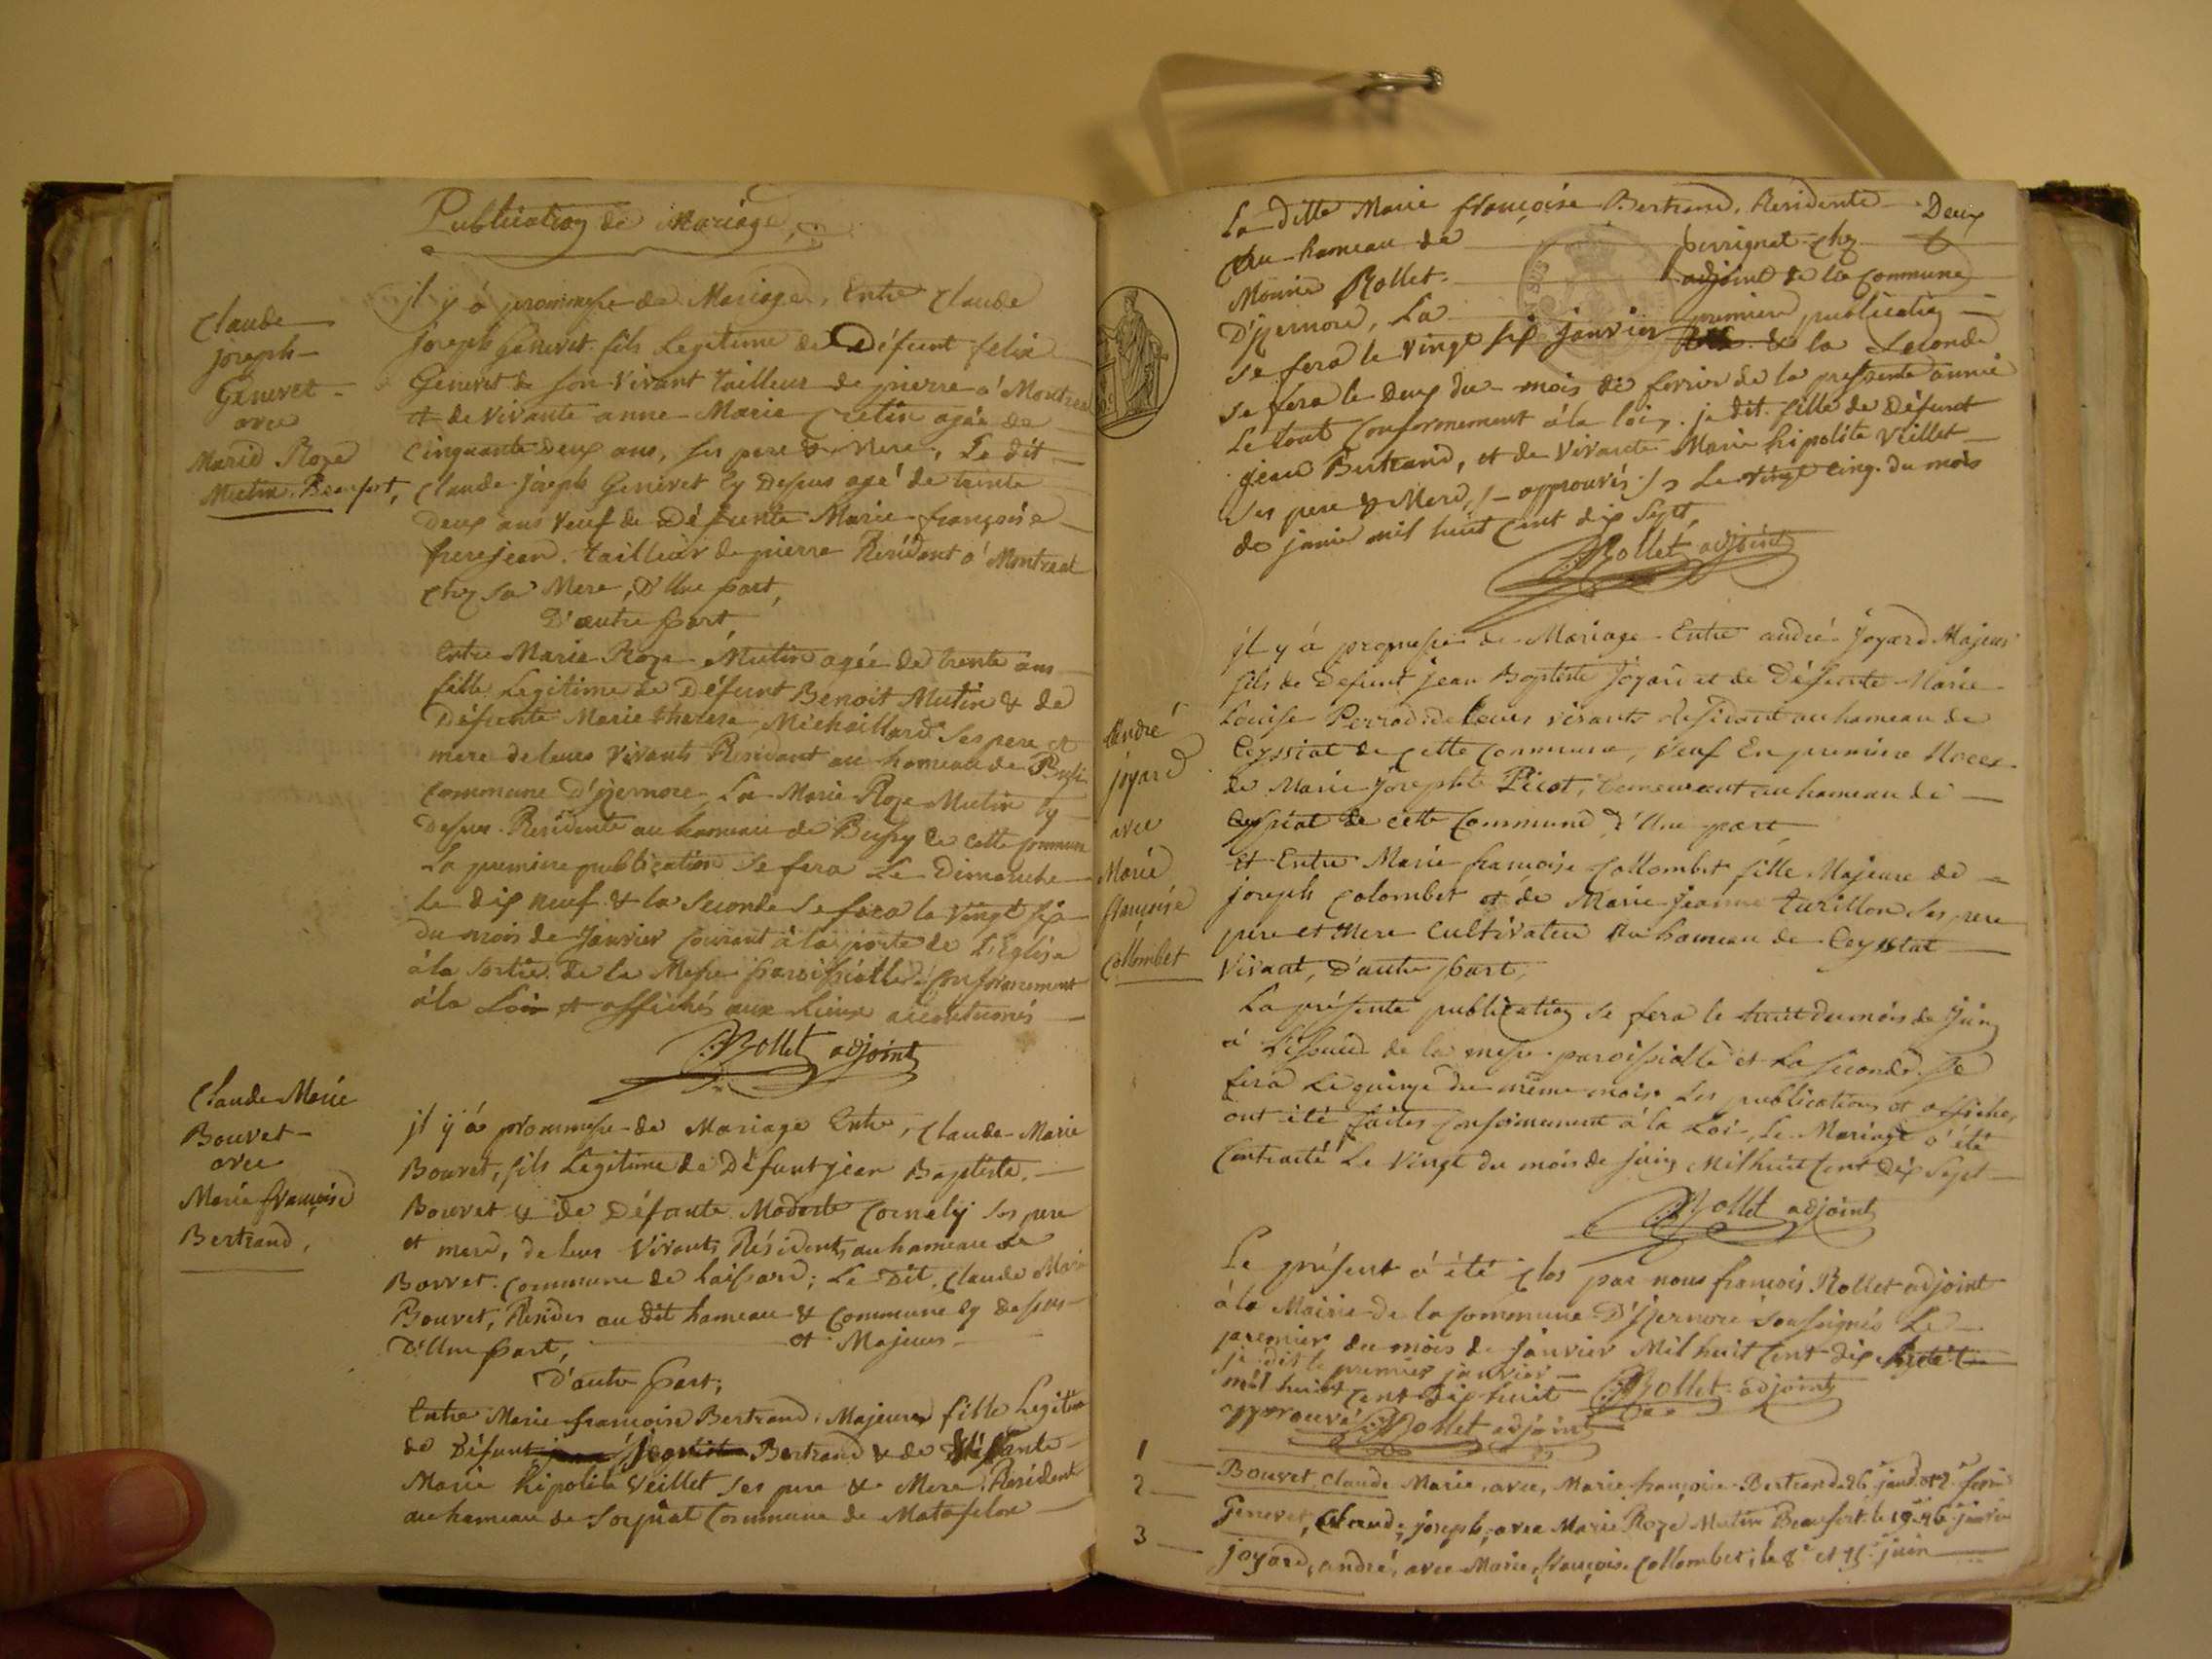 Publication de Mariage,
Claude
joseph
Genevet
avec
Marie Roze
Mutin Beaufort,
jl y á promesse de Mariage, Entre Claude
joseph Genevet fils Legitime de Défunt felix
Genevet de son vivant tailleur de pierre á Montreal
et de vivante anne Marie Cretin agée de
Cinquante deux ans, ses pere & Mere, Le dit
Claude joseph Genevet Cy dessus agé de trente
deux ans veuf de Défunte Marie françoise
frerejean tailleur de pierre Résidant á Montreal
Chez sa Mere, D'Une part,
D'autre part
Entre Marie Roze Mutin agée de trente ans
fille Legitime de Défunt Benoit Mutin & de
Défunte Marie therese Michaillard ses pere et
mere de leurs vivants Résidant au hameau de
Commune D'jzernore La Marie Roze Mutin Cy
Dessus Residente au hameau de Bussy de cette Commune
La premiere publication se fera Le Dimanche
le dix neuf & la Seconde se fera le vingt six
du mois de Janvier Courant á la porte de L'Eglise
á la sortie de la Messe paroissialle Conformement
á la Loix et affichés aux Lieux accoutumés
Rollet adjoint
Claude Marie
Bouvet
avec
Marie françoise
Bertrand,
jl y á prommesse de Mariage Entre, Claude Marie
Bouvet, fils Legitime de Défunt jean Baptiste
Bouvet & de Défunte Modeste Cornely ses pere
et mere, de leur Vivants Résidents au hameau de
Commune de ; Le Dit, Claude Marie
Bouvet, Résider au dit hameau & Commune Cy dessus
D'Une part, et Majeur
D'autre part;
Entre Marie françoise Bertrand, Majeure fille Legitime
de Défunt Bertrand & de
Marie hipolite Veillet ses pere & Mere, Résidente
au hameau de Commune de Matafelon
La ditte Marie françoise Bertrand, Residente Deux
Au hameau de perrignat chez
Monsie Rollet adjoint de la Commune
D'jzernore, La premiere publication
se fera le vingt six janvier & la Seconde
se fera le deux du mois de fevrier de la presente année
Le tout Conformement á la loix. je dit fille de Défunt
jean Bertrand, et de vivante Marie hipolite Veillet
ses pere & Mere, approuvés Le vingt cinq du mois
de janvier mil huit Cent dix Sept,
Rollet adjoint
André
joyard
avec
Marie
françoise
Collombet
jl y á promesse de Mariage Entre andré Joyard Majeur
fils de Défunt jean Baptiste Joyard et de Défunte Marie
Louise Perrod de leurs vivants résidant au hameau de
Ceyssiat de cette Commune, veuf En premiere Noces
de Marie Josephte Picot, demeurant au hameau de
Ceyssiat de cette Commune D'Une part,
Et Entre Marie francoise Collombet fille Majeure de
joseph Colombet et de Marie jeanne turillon ses pere
pere et Mere Cultivateur Au hameau de Ceyssiat
Vivant, D'autre part,
La présente publication se fera le huit du mois de Juin
á l'issue de la messe paroissialle et La seconde Se
fera Le quinze du même mois. Les publications et affiches,
ont été faites Conformement á la Loi, Le Mariage á été
Contracté Le Vingt du mois de juin Mil huit Cent dix Sept
Rollet adjoint
Le présent á été Clos par nous francois Rollet adjoint
á la Mairie de la Commune D'jzernore Soussignés Le
premier du mois de Janvier Mil huit Cent dix
je dis le premier janvier
mil huit Cent dix huit Rollet adjoint
approuvé Rollet adjoint
1 Bouvet, Claude Marie, avec, Marie françoise Bertrand 26 janv. et 2 fevrier
2 Genevet, Claude, joseph, avec Marie Roze Mutin Beaufort le 19 & 26 janvier
3 joyard, andré, avec Marie, françoise Collombet, le 8e et 15e juin